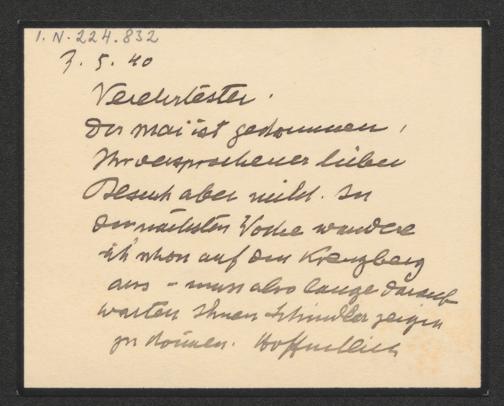 I.N. 224.832
7. 5. 40
Verehrtester.
Der Mai ist gekommen,
Ihr versprochener lieber
Besuch aber nicht. In
der nächsten Woche wandere
ich schon auf den Kreuzberg
aus - muss also lange darauf
warten Ihnen Schindler zeigen
zu können. Hoffentlich